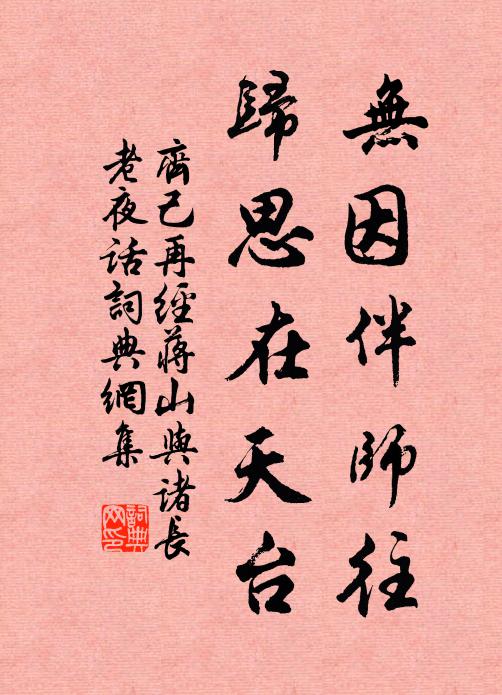 無因伴師往
歸思在天台
齊己再經蔣山與諸長
老夜話詞典網集
詞典
网印